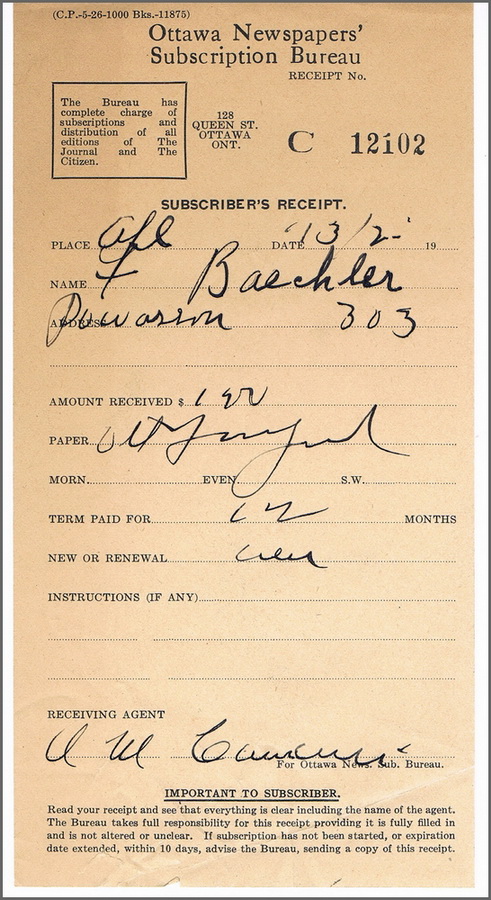 (C.P.-5-26-1000 Bks.-11875)
Ottawa Newspapers'
Subscription Bureau
RECEIPT No.
The Bureau has
complete charge of
subscriptions and
distribution of all
editions of The
Journal and The
Citizen.
128
QUEEN ST.
OTTAWA
ONT.
C 12102
SUBSCRIBER'S RECEIPT.
PLACE DATE 13/2 19
NAME Baechler
ADDRESS 303
AMOUNT RECEIVED $ 1
PAPER Ott
MORN. EVEN. S.W.
TERM PAID FOR 12 MONTHS
NEW OR RENEWAL new
INSTRUCTIONS (IF ANY)
RECEIVING AGENT
For Ottawa News. Sub. Bureau.
IMPORTANT TO SUBSCRIBER.
Read your receipt and see that everything is clear including the name of the agent.
The Bureau takes full responsibility for this receipt providing it is fully filled in
and is not altered or unclear. If subscription has not been started, or expiration
date extended, within 10 days, advise the Bureau, sending a copy of this receipt.